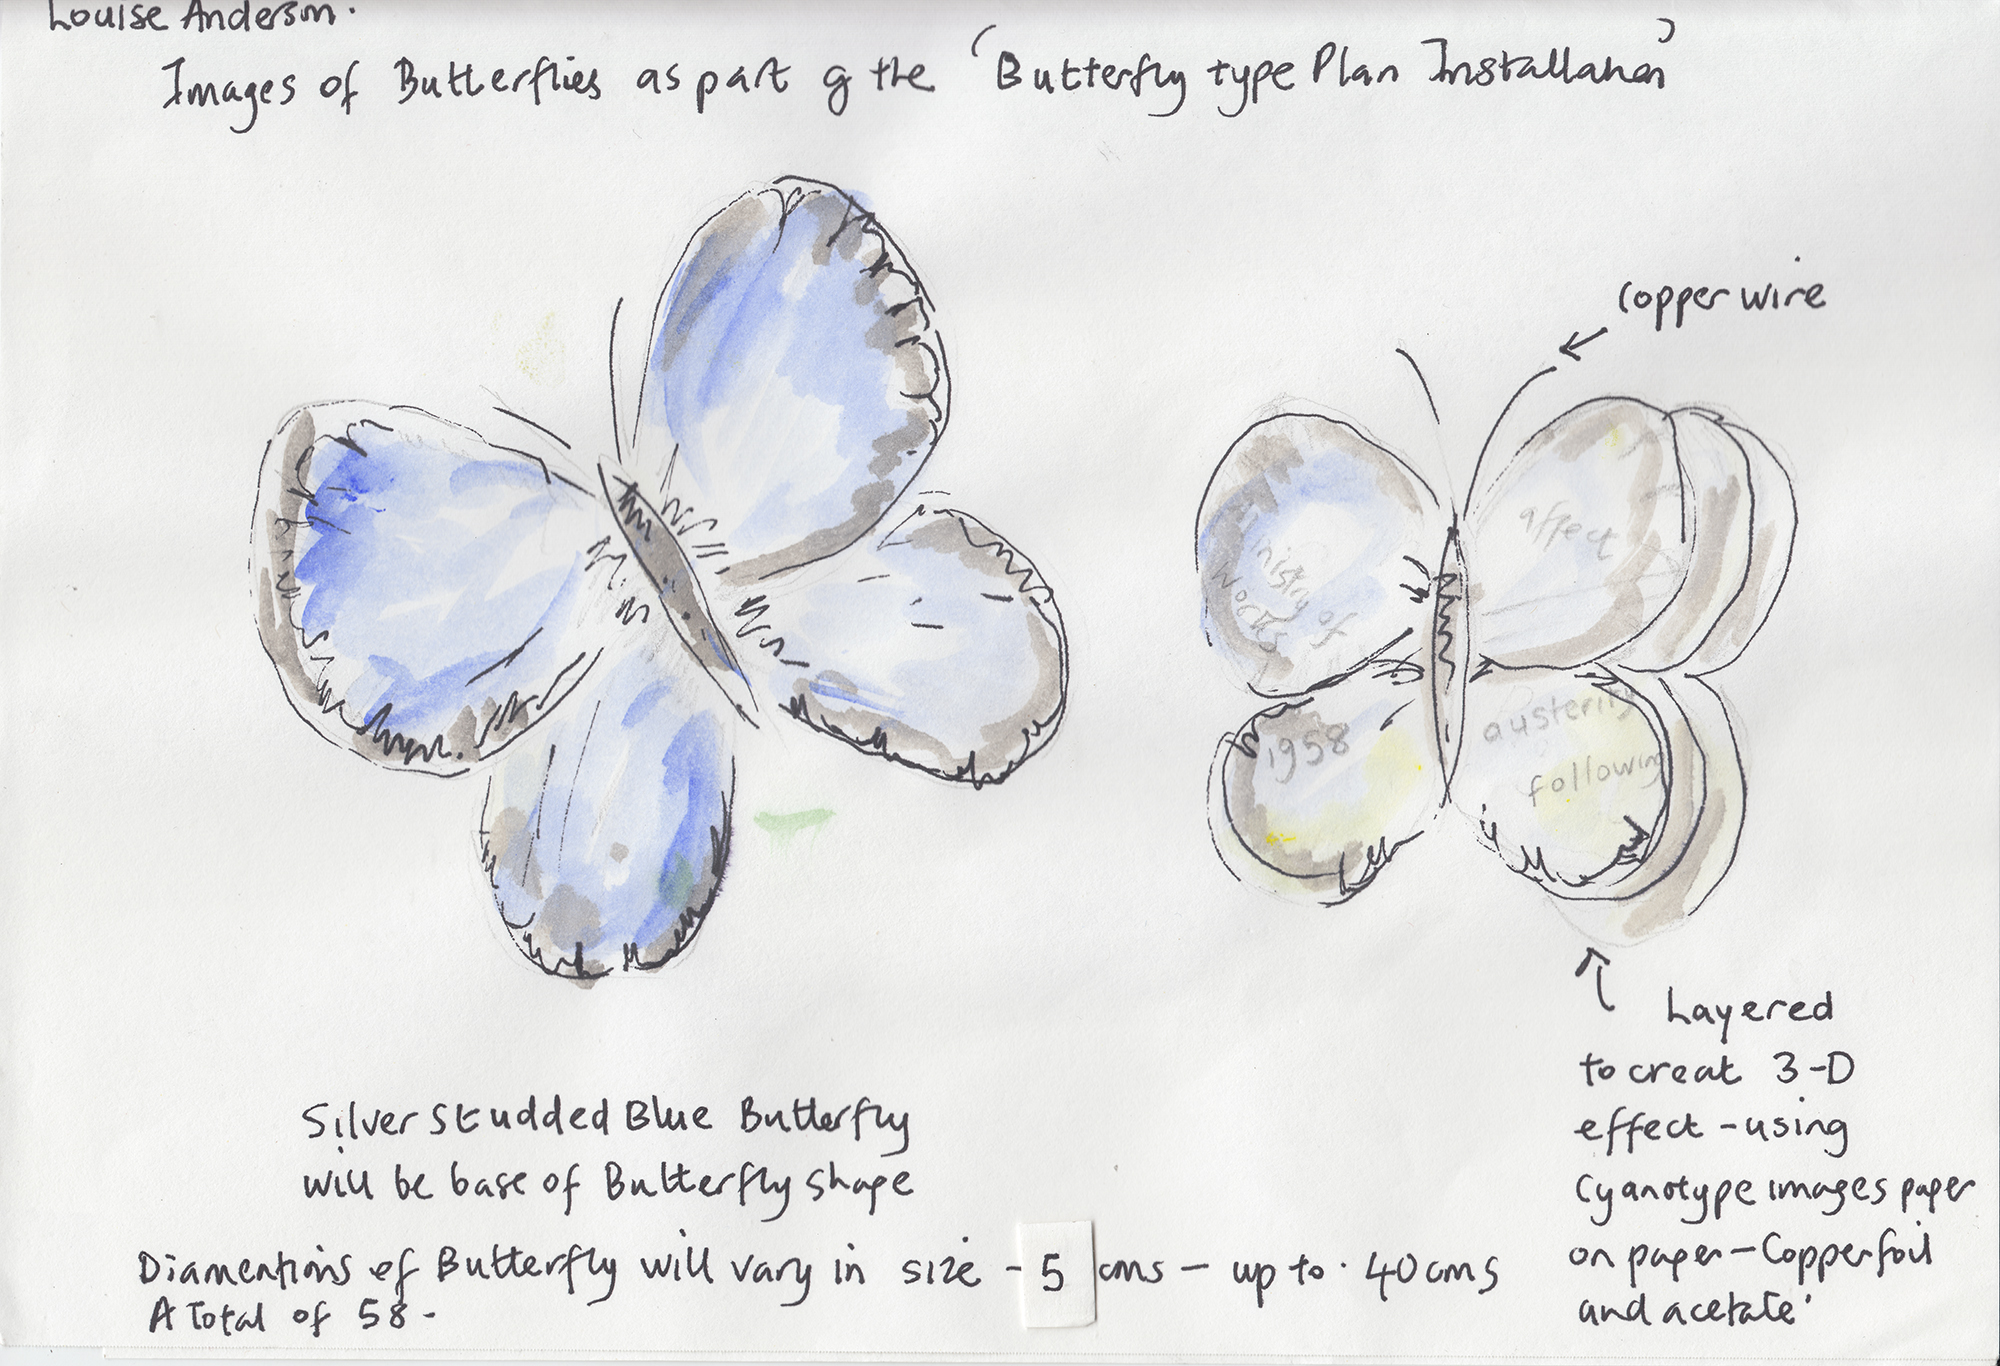 Louise Anderson.
Images of Butterflies as part of the 'Butterfly type Plan Installation'
copper wire
affect
nistry of
Works
1958
austerity
following
Layered
to creat 3-D
effect - using
Cyanotype images paper
on paper - Copper foil
and acetate'
Silver Studded Blue Butterfly
will be base of Butterfly shape
Diamentions of Butterfly will vary in size - 5 cms - up to · 40 cms
A Total of 58 -